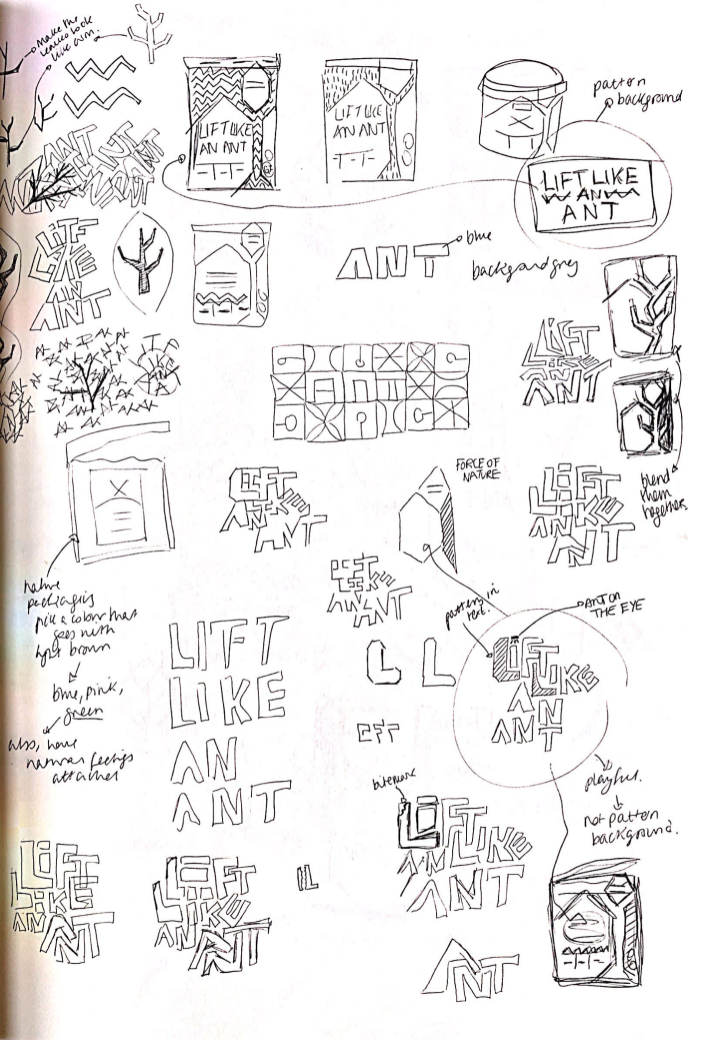 make the
look
patton
background
LIFT LIKE
AN ANT
LIFT LIKE
AN ANT
LIFT LIKE
AN
ANT
ANT
LIFT
LIKE
AN
ANT
ANT
blue
background grey
LIFT
LIKE
AN
ANT
FORCE OF
NATURE
blend
them
together
LIFT
LIKE
AN
ANT
LIFT
LIKE
AN
ANT
LIFT
LIKE
AN
ANT
pattern in
text.
ANT ON
THE EYE
native
packaging
pick a colour that
goes with
light brown
blue, pink,
green
also, have
natural feelings
attached
LIFT
LIKE
AN
ANT
L L
LIFT
LIKE
AN
ANT
playful.
not patton
background.
LIFT
LIKE
AN
ANT
LIFT
LIKE
AN
ANT
LIFT
LIKE
AN
ANT
ANT